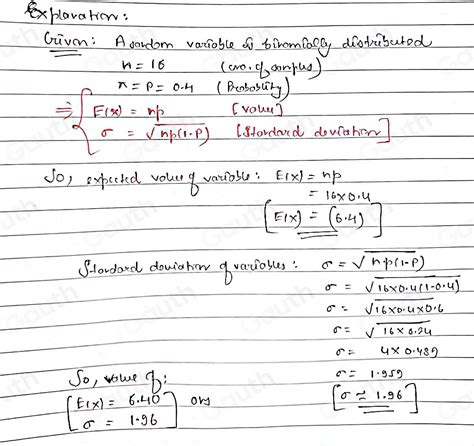 Explanation:
Given: A random variable is binomially distributed
n = 16 (no. of samples)
π = P = 0.4 (Probability)
⇒ { E(x) = np [value]
σ = √np(1-P) [Standard deviation]
So, expected value of variable: E(x) = np
= 16×0.4
[E(x) = (6.4)]
Standard deviation of variables: σ = √np(1-P)
σ = √16×0.4(1-0.4)
σ = √16×0.4×0.6
σ = √16×0.24
σ = 4×0.489
σ = 1.959
[σ ≃ 1.96]
So, value of:
[E(x) = 6.40
σ = 1.96] ans